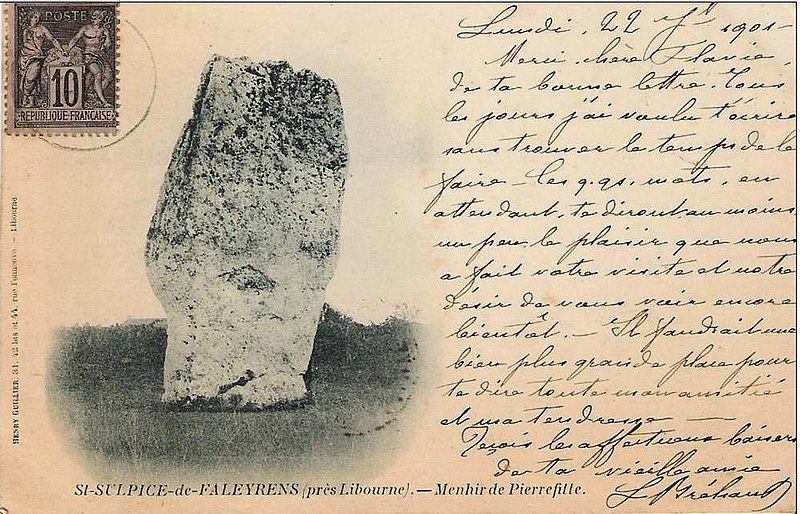 POSTE
10
REPUBLIQUE FRANÇAISE
Lundi, 22 Jer 1901-
Merci, chère Flavie,
de ta bonne lettre. Tous
les jours j'ai voulu t'écrire
sans trouver le temps de le
faire - Ces q.qs. mots, en
attendant, te diront au moins
un peu le plaisir que nous
a fait votre visite et notre
désir de vous voir encore
bientôt. - Il faudrait une
bien plus grande place pour
te dire toute mon amitié
et ma tendresse -
Reçois les affectueux baisers
de ta vieille amie
L Bréhaud
HENRY GUILLIER, 31, 42 bis et 44, rue Fonneuve. - Libourne
St-SULPICE-de-FALEYRENS (près Libourne). - Menhir de Pierrefitte.